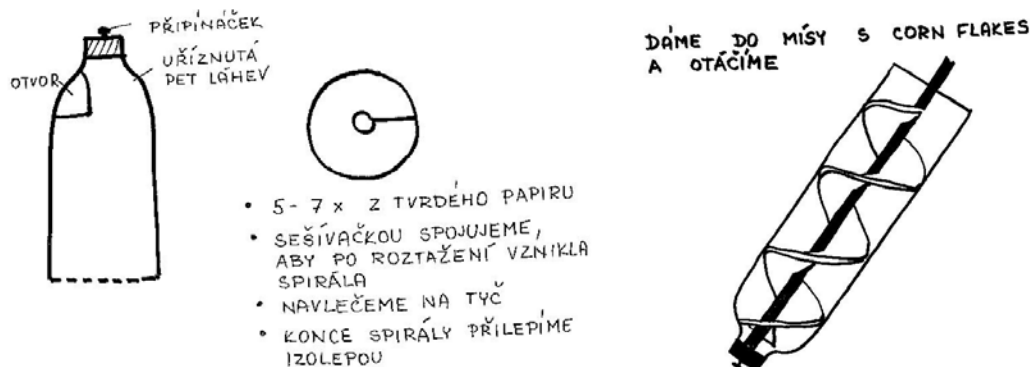 PŘIPÍNÁČEK
UŘÍZNUTÁ
PET LÁHEV
OTVOR
• 5-7 x Z TVRDÉHO PAPIRU
• SEŠÍVAČKOU SPOJUJEME,
ABY PO ROZTAŽENÍ VZNIKLA
SPIRÁLA
• NAVLEČEME NA TYČ
• KONCE SPIRÁLY PŘILEPÍME
IZOLEPOU
DÁME DO MÍSY S CORN FLAKES
A OTÁČÍME